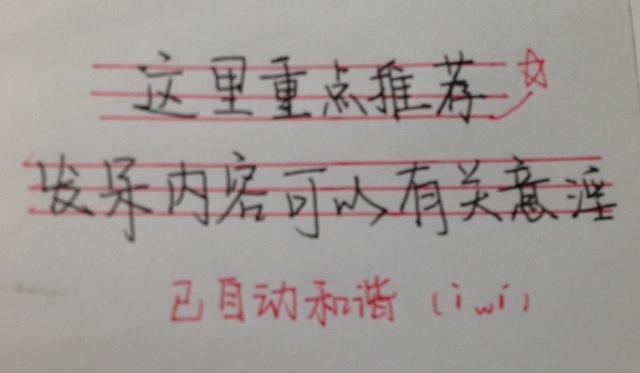 这里重点推荐
发呆内容可以有关意淫
已自动和谐(iwi)